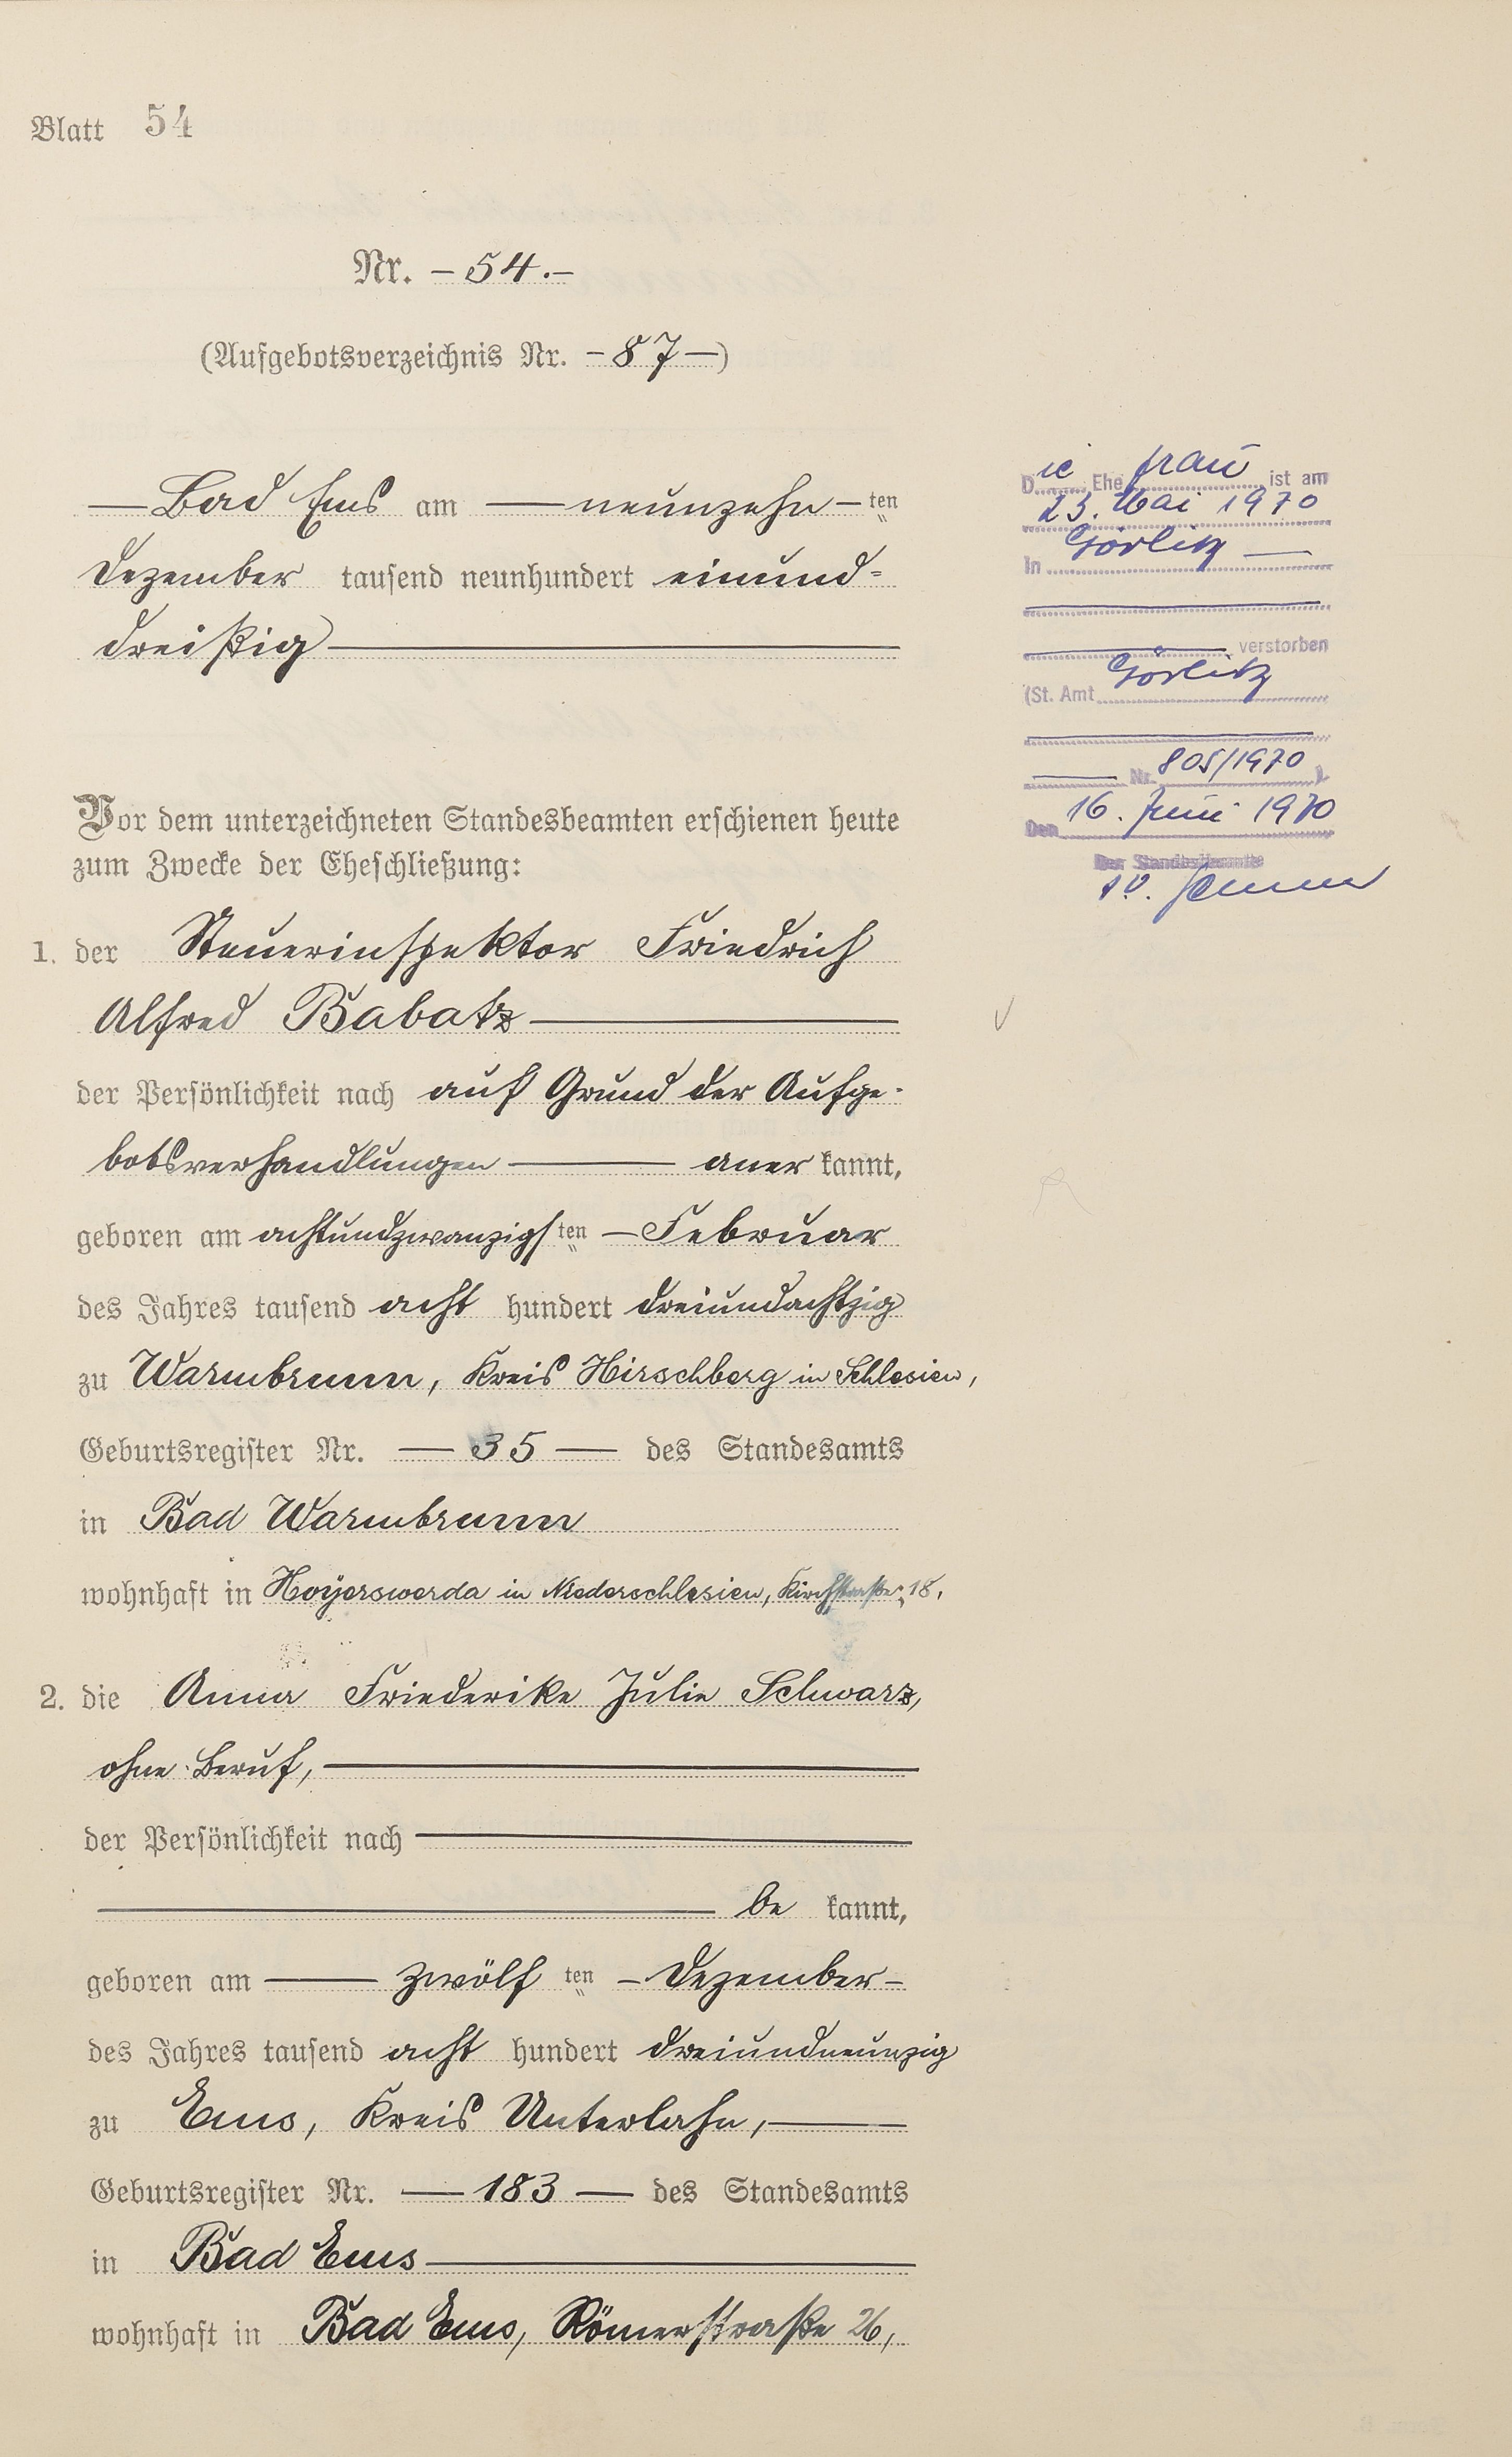 Blatt 54
Nr. – 54. –
(Aufgebotsverzeichnis Nr. – 87 –)
— Bad Ems am — neunzehn – ten
Dezember tausend neunhundert einund=
dreißig —
Vor dem unterzeichneten Standesbeamten erschienen heute
zum Zwecke der Eheschließung:
1. der Steuerinspektor Friedrich
Alfred Babatz —
der Persönlichkeit nach auf Grund der Aufge-
botsverhandlungen — aner kannt,
geboren am achtundzwanzigs ten – Februar
des Jahres tausend acht hundert dreiundachtzig
zu Warmbrunn, Kreis Hirschberg in Schlesien,
Geburtsregister Nr. — 35 — des Standesamts
in Bad Warmbrunn
wohnhaft in Hoyerswerda in Niederschlesien, Kirchstraße 18,
2. die Anna Friederike Julie Schwarz,
ohne Beruf, —
der Persönlichkeit nach —
— be kannt,
geboren am — zwölf ten – Dezember –
des Jahres tausend acht hundert dreiundneunzig
zu Ems, Kreis Unterlahn, —
Geburtsregister Nr. — 183 — des Standesamts
in Bad Ems —
wohnhaft in Bad Ems, Römerstraße 26,
Die Ehefrau ist am
23. Mai 1970
in Görlitz —
— verstorben
(St. Amt Görlitz
— Nr. 805/1970 ).
Den 16. Juni 1970
Der Standesbeamte